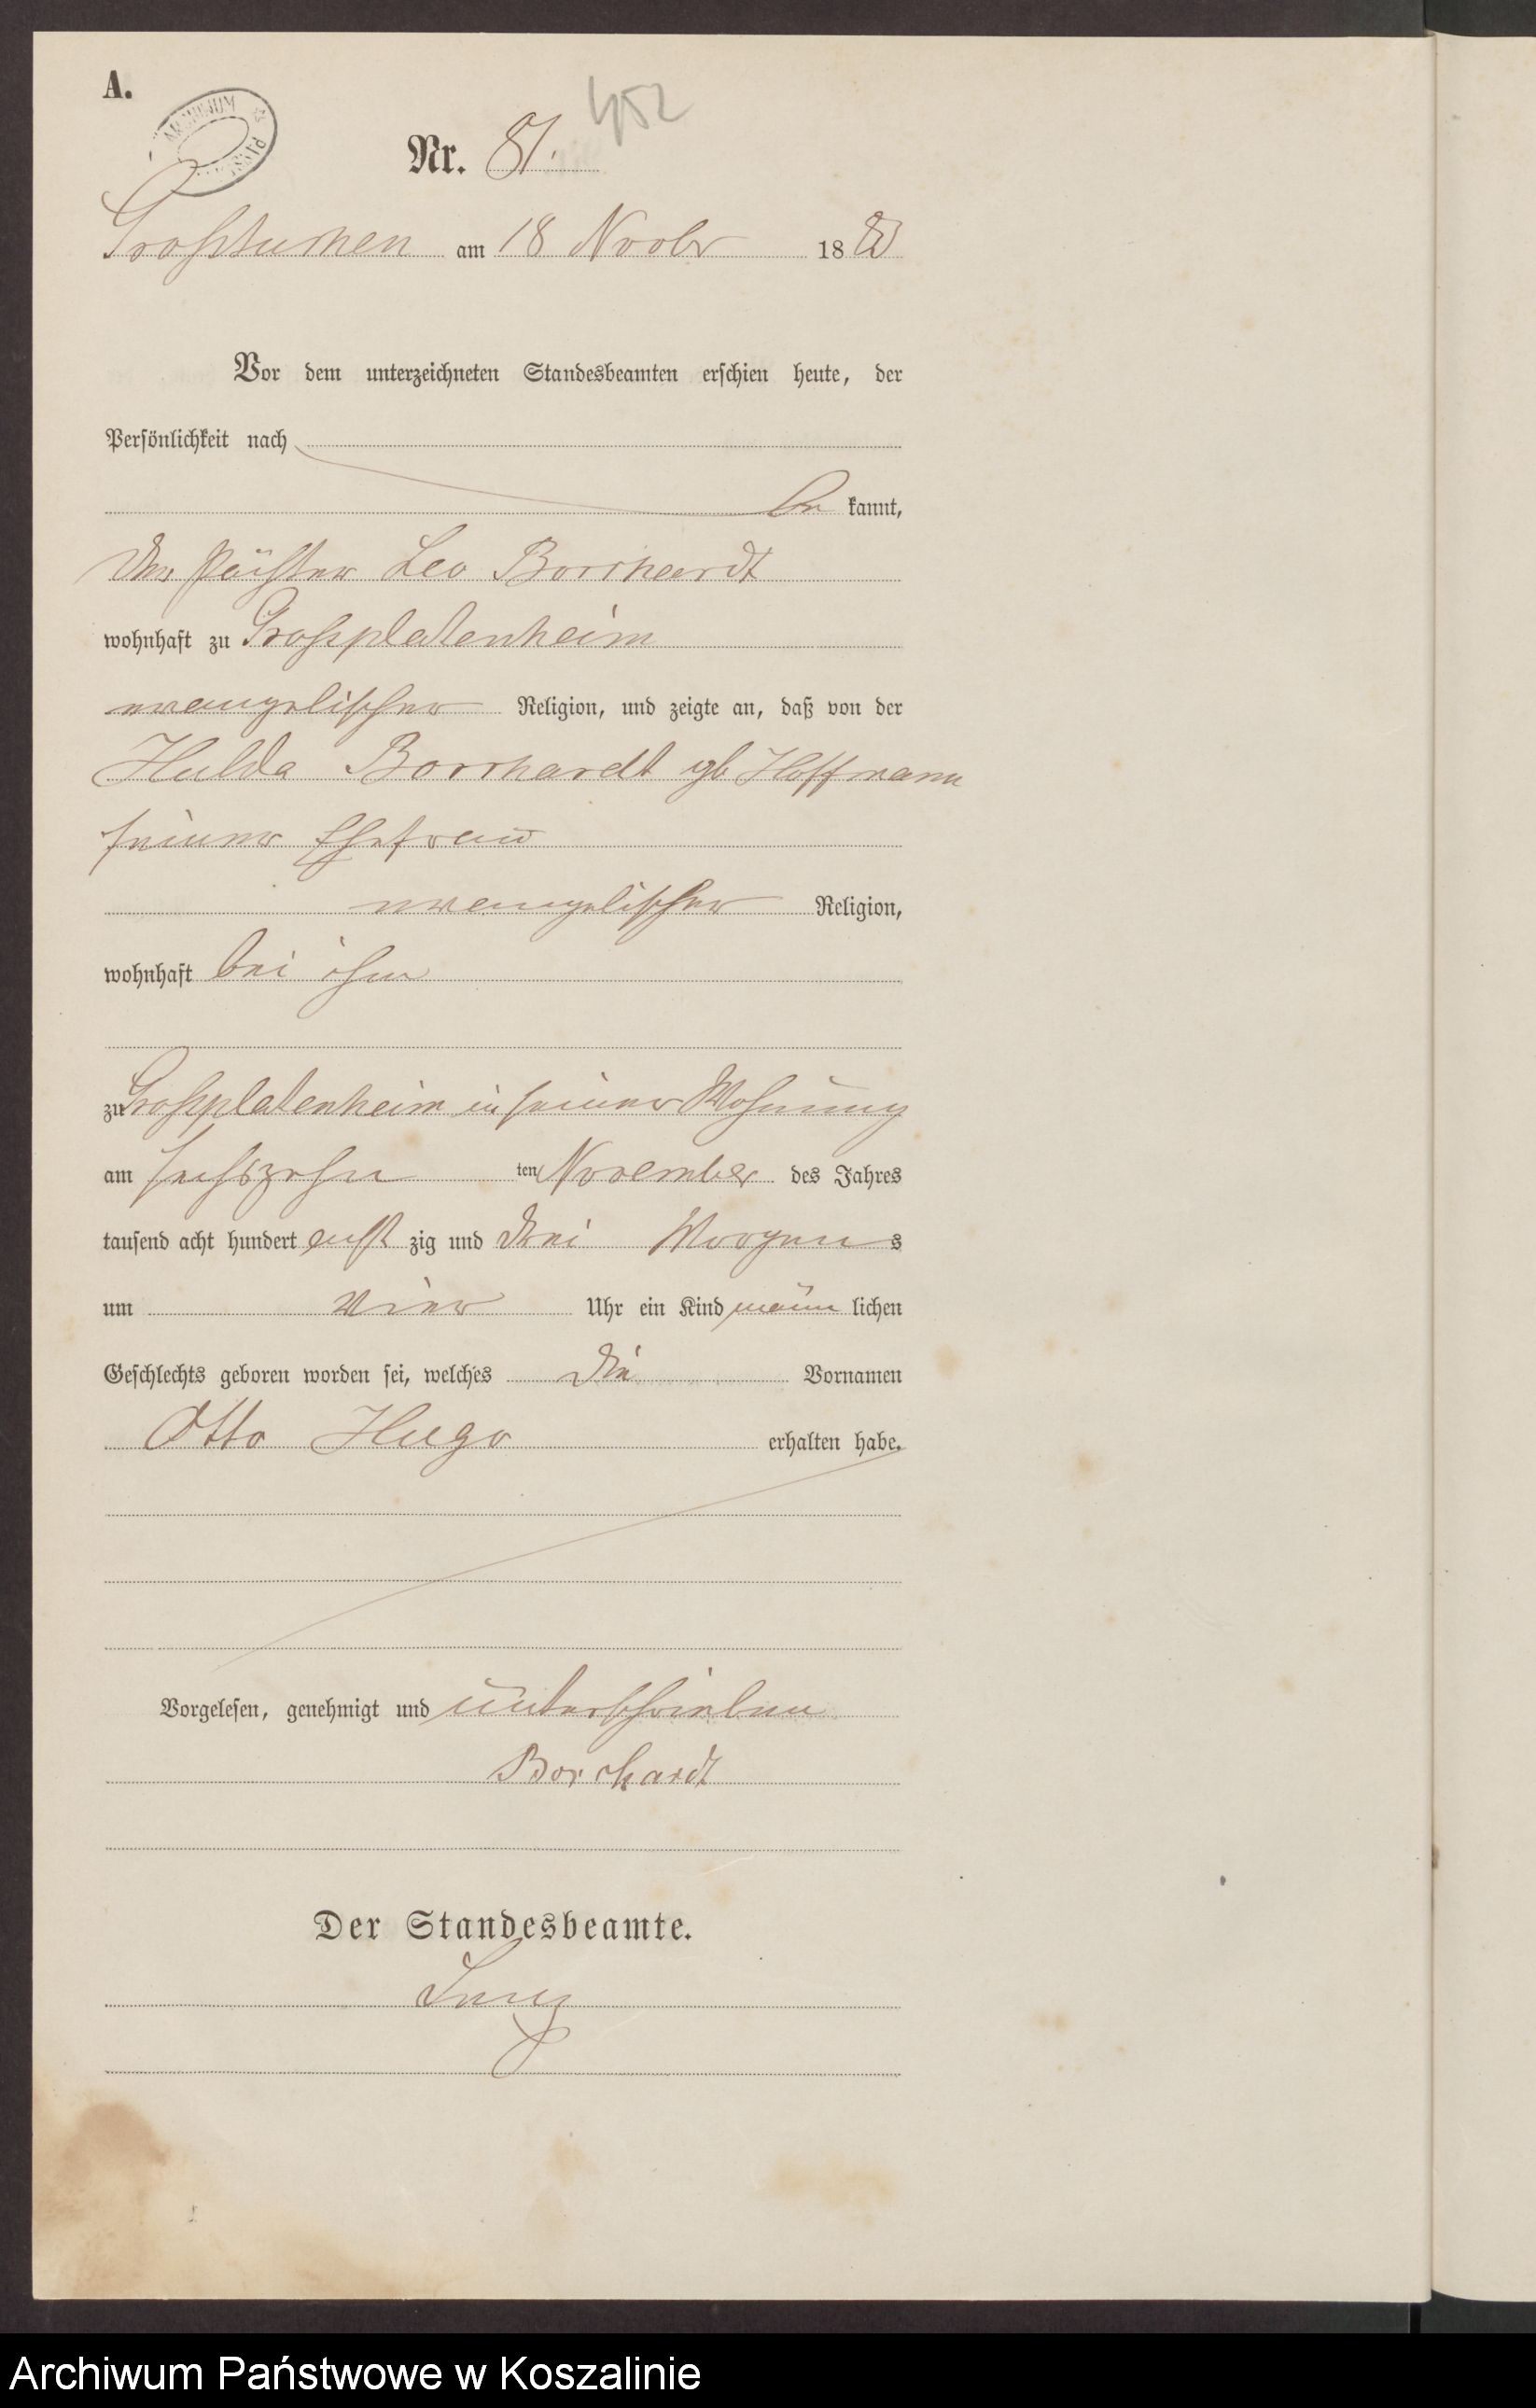 A.
ARCHIWUM
Nr. 81.
452
Großtuchen am 18 Novbr 1883
Vor dem unterzeichneten Standesbeamten erschien heute, der
Persönlichkeit nach
be kannt,
Der Pächter Leo Borchardt
wohnhaft zu Grossplatenheim
evangelischer Religion, und zeigte an, daß von der
Hulda Borchardt gb Hoffmann
seiner Ehefrau
evangelischer Religion,
wohnhaft bei ihm
zu Grossplatenheim in seiner Wohnung
am sechszehn ten November des Jahres
tausend acht hundert acht zig und drei Morgens
um vier Uhr ein Kind männ lichen
Geschlechts geboren worden sei, welches die Vornamen
Otto Hugo erhalten habe.
Vorgelesen, genehmigt und unterschrieben
Borchardt
Der Standesbeamte.
Archiwum Państwowe w Koszalinie